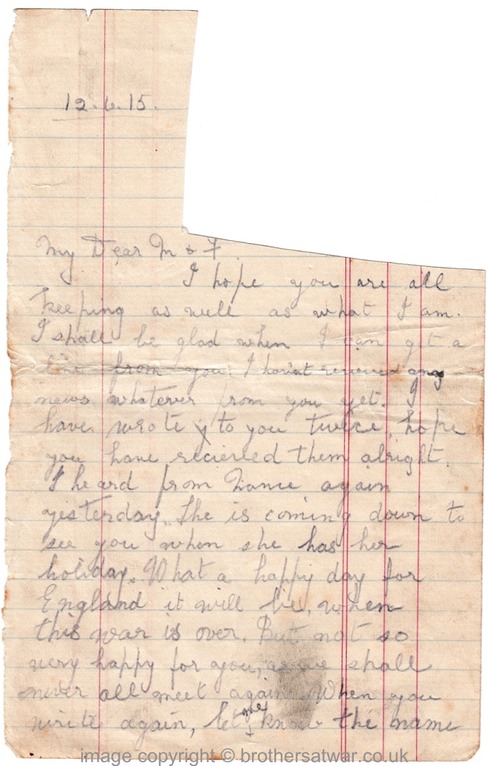 12.6.15.
My Dear M & F.
I hope you are all
keeping as well as what I am.
I shall be glad when I can get a
line from you, I havint recieved any
news whatever from you yet. I
have wrote to you twice, hope
you have recieved them alright.
I heard from again
yesterday. She is coming down to
see you when she has her
holiday. What a happy day for
England it will be, when
this war is over. But not so
very happy for you, as we shall
never all meet again. When you
write again, let me know the name
image copyright © brothersatwar.co.uk